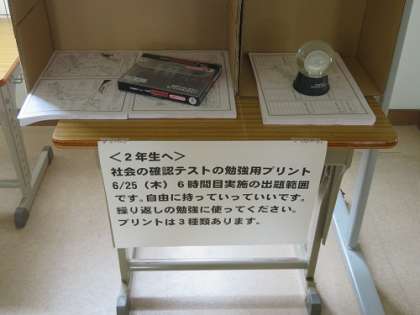 <２年生へ>
社会の確認テストの勉強用プリント
6/25（木）６時間目実施の出題範囲
です。自由に持っていっていいです。
繰り返しの勉強に使ってください。
プリントは３種類あります。